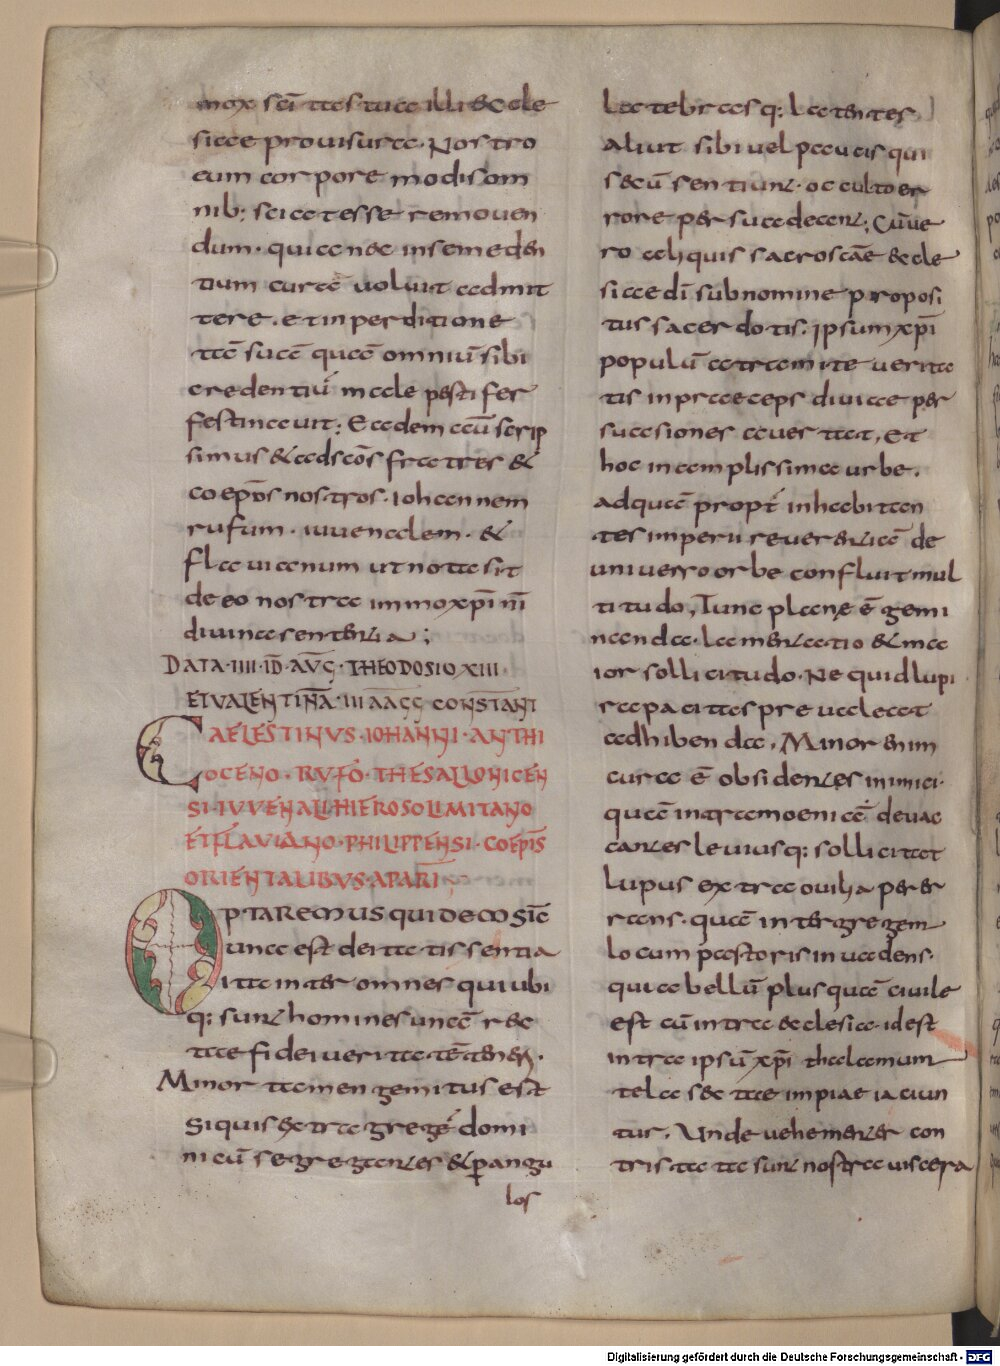 mox sci̅ tatis tuae illi & cle
siae prouisura. Nostro
eum corpore modis om
nib; sciat esse remouen
dum. qui an& insemeden
tium cura̅ uoluit admit
tere. et in perditione
ta̅ sua̅ qua̅ omniu̅ sibi
credentiu̅ male pestifer
festinauit; Eadem au̅ scrip
simus & ad sc̅os fratres &
coep̅os nostros. iohannem
rufum. iuuenalem. &
flauianum ut nota sit
de eo nostra immo xp̅i n̅i
diuina sententia;
DATA IIII ID̅ AVG̅ THEODOSIO XIII
ET VALENTINA̅ III AAGG CONSTANT
CAELESTINVS IOHANNI ANTHI
OCENO RVFO THESALLONICEN
SI IVVENALI HIEROSOLIMITANO
ET FLAVIANO PHILIPPENSI COEPI̅S
ORIENTALIBVS A PARI;
OPTAREMUS QUIDEM SIC̅
una est deitatis sentia
ita inter omnes qui ubi
q: sunt homines una̅ rec
tae fidei ueritate̅ teneri.
Minor tamen gemitus est
Si quis extra grege̅ domi
nicu̅ segregantes & p̱ angu
los
latebrasq: latentes
aliut sibi uel paucis qui
secu̅ sentiunt. occulto er
rore persuadeant; Cu̅ ue
ro aliquis sacrosca̅e & cle
siae di̅ sub nomine proposi
tus sacerdotis. ipsum xp̅i
populu̅ a tramite uerita
tis in praeceps diuiae per
suasiones auertat, Et
hoc in amplissima urbe.
ad qua̅ propt̅ inhabitan
tes imperii reuerentia̅ de
uniuerso orbe confluit mul
titudo, Tunc plane e̅ gemi
nanda. lamentatio & ma
ior sollicitudo. Ne quid lupi
rapacitati preualeat
adhibenda. Minor enim
cura e̅ obsidentes inimici
qua̅ intra moenia̅ deuac
cantes leuiusq: sollicitat
lupus extra ouilia perer
rans. qua̅ inter gregem
locum pastoris inuadens.
quia bellu̅ plus qua̅ ciuile
est cu̅ intra & clesia. id est
intra ipsu̅ xp̅i thalamum
tela sectae impiae iaciun
tur. Unde uehementer con
tristata sunt nostra uiscera
Digitalisierung gefördert durch die Deutsche Forschungsgemeinschaft - DFG